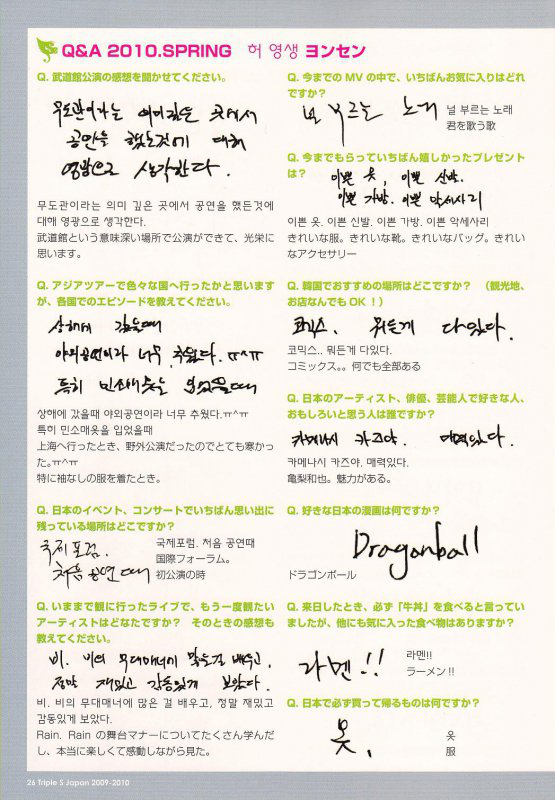 Q&A 2010.SPRING 허 영생 ヨンセン
Q. 武道館公演の感想を聞かせてください。
무도관이라는 의미 깊은 곳에서
공연을 했든것에 대해
영광으로 생각한다.
무도관이라는 의미 깊은 곳에서 공연을 했든것에
대해 영광으로 생각한다.
武道館という意味深い場所で公演ができて、光栄に
思います。
Q. アジアツアーで色々な国へ行ったかと思います
が、各国でのエピソードを教えてください。
상해에 갔을때
야외공연이라 너무 추웠다. ㅠ^ㅠ
특히 민소매옷을 입었을때
상해에 갔을때 야외공연이라 너무 추웠다.ㅠ^ㅠ
특히 민소매옷을 입었을때
上海へ行ったとき、野外公演だったのでとても寒かっ
た。ㅠ^ㅠ
特に袖なしの服を着たとき。
Q. 日本のイベント、コンサートでいちばん思い出に
残っている場所はどこですか?
국제포럼.
처음 공연때
국제포럼. 처음 공연때
国際フォーラム。
初公演の時
Q. いままで観に行ったライブで、もう一度観たい
アーティストはどなたですか? そのときの感想も
教えてください。
비. 비의 무대매너에 많은걸 배우고,
정말 재밌고 감동있게 보았다.
비. 비의 무대매너에 많은 걸 배우고, 정말 재밌고
감동있게 보았다.
Rain. Rain の舞台マナーについてたくさん学んだ
し、本当に楽しくて感動しながら見た。
Q. 今までの MV の中で、いちばんお気に入りはどれ
ですか?
널 부르는 노래
널 부르는 노래
君を歌う歌
Q. 今までもらっていちばん嬉しかったプレゼント
は?
이쁜 옷, 이쁜 신발.
이쁜 가방. 이쁜 악세사리
이쁜 옷. 이쁜 신발. 이쁜 가방. 이쁜 악세사리
きれいな服。きれいな靴。きれいなバッグ。きれい
なアクセサリー
Q. 韓国でおすすめの場所はどこですか? (観光地、
お店なんでも OK!)
코믹스. 뭐든게 다있다.
코믹스.. 뭐든게 다있다.
コミックス。。何でも全部ある
Q. 日本のアーティスト、俳優、芸能人で好きな人、
おもしろいと思う人は誰ですか?
카메나시 카즈야. 매력있다.
카메나시 카즈야. 매력있다.
亀梨和也。魅力がある。
Q. 好きな日本の漫画は何ですか?
Dragonball
ドラゴンボール
Q. 来日したとき、必ず「牛丼」を食べると言ってい
ましたが、他にも気に入った食べ物はありますか?
라멘!!
라멘!!
ラーメン!!
Q. 日本で必ず買って帰るものは何ですか?
옷,
옷
服
26 Triple S Japan 2009-2010